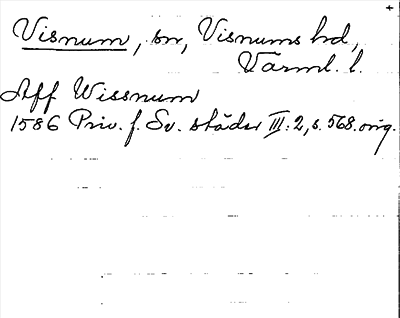 +
Visnum, sn, Visnums hd,
Värml. l.
Aff Wissnum
1586 Priv. f. Sv. städer III:2, s. 568. orig.